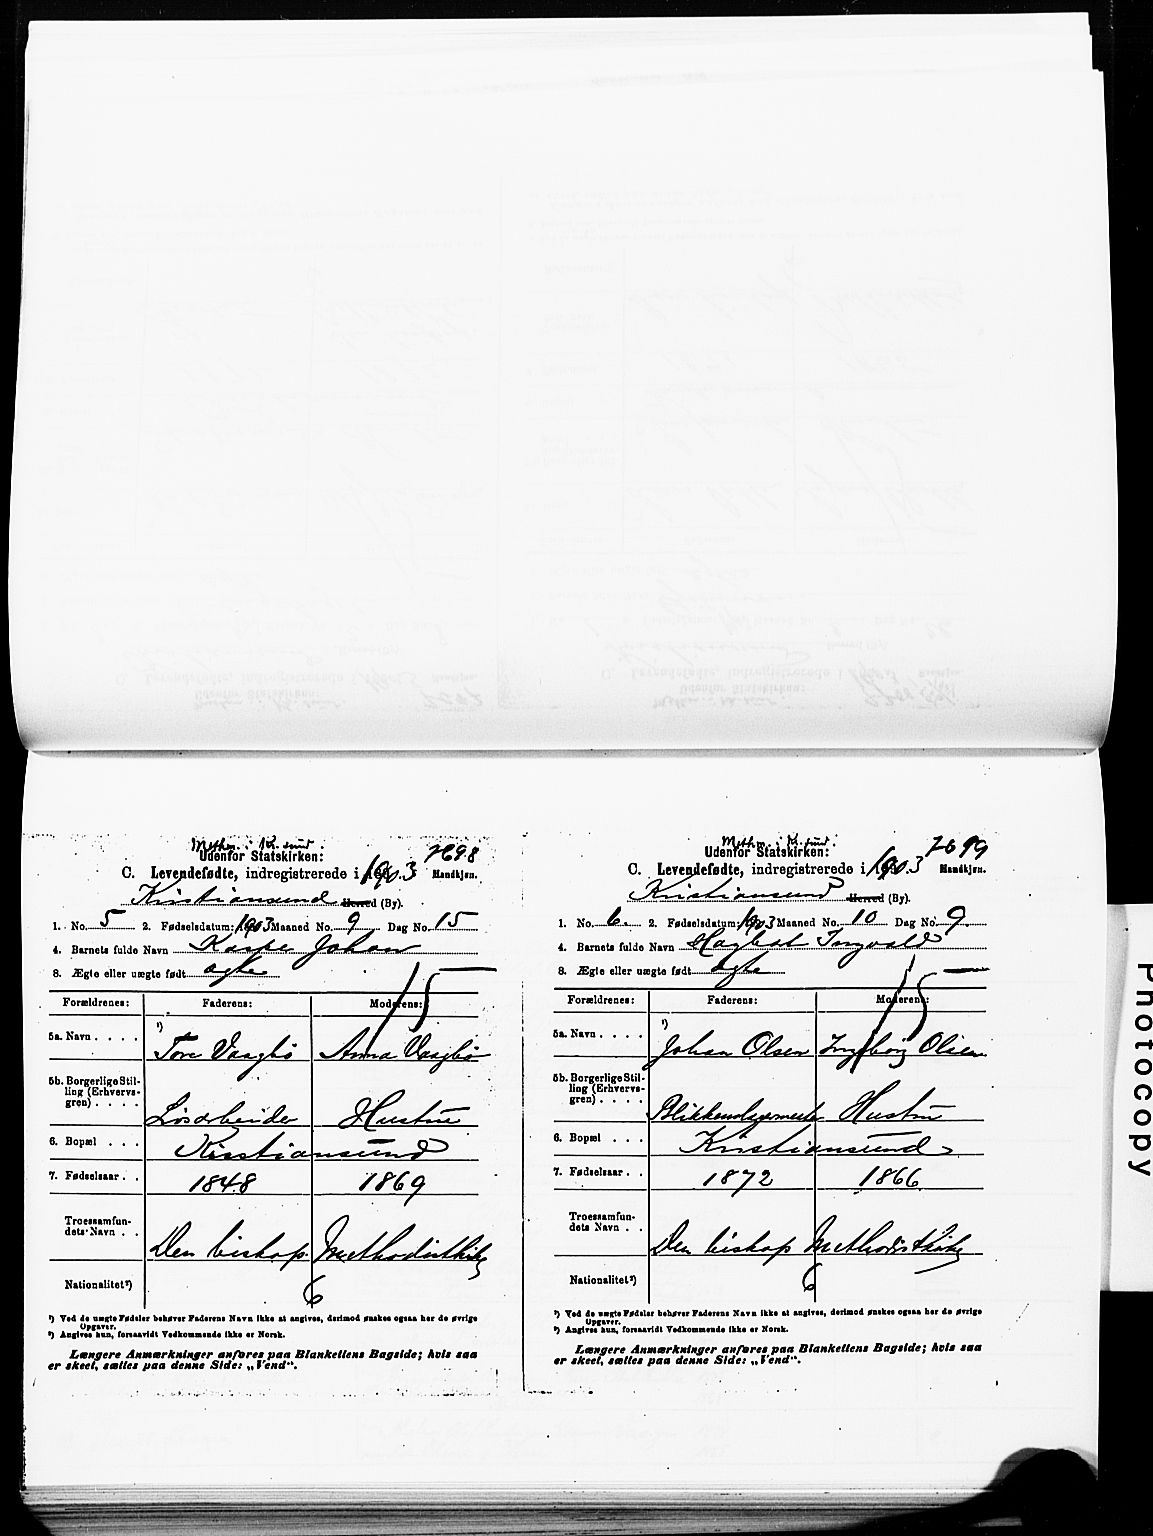 Methm. i Kr.sund.
Udenfor Statskirken:
2698
C. Levendefødte, indregistrerede i 1903. Mandkjøn.
Kristiansund Herred (By).
1. No. 5 2. Fødselsdatum: 1903 Maaned No. 9 Dag No. 15
4. Barnets fulde Navn Johan
8. Ægte eller uægte født ægte
15
Forældrenes: Faderens: Moderens:
5a. Navn . . . . ¹) Tore Vaagbø Anna Vaagbø
5b. Borgerlige Stil-
ling (Erhvervs-
gren) . . . . Løsarbeider Hustru
6. Bopæl . . . Kristiansund
7. Fødselsaar . . 1848 1869
Troessamfun-
dets Navn . . Den biskop Methodistkirke
Nationalitet²) 6
¹) Ved de uægte Fødsler behøver Faderens Navn ikke at angives, derimod ønskes ogsaa her de øvrige
Opgaver.
²) Angives kun, forsaavidt Vedkommende ikke er Norsk.
Længere Anmærkninger anføres paa Blankettens Bagside; hvis saa
er skeet, sættes paa denne Side: „Vend“.
Methm. i Kr.sund.
Udenfor Statskirken:
2699
C. Levendefødte, indregistrerede i 1903 Mandkjøn.
Kristiansund Herred (By).
1. No. 6. 2. Fødselsdatum: 1903 Maaned No. 10 Dag No. 9.
4. Barnets fulde Navn Ingvald
8. Ægte eller uægte født ægte
15
Forældrenes: Faderens: Moderens:
5a. Navn . . . . ¹) Johan Olsen Ingeborg Olsen
5b. Borgerlige Stil-
ling (Erhvervs-
gren) . . . . Blikkenslagermester Hustru
6. Bopæl . . . Kristiansund
7. Fødselsaar . . 1872 1866
Troessamfun-
dets Navn . . Den biskop Methodistkirke
Nationalitet²) 6
¹) Ved de uægte Fødsler behøver Faderens Navn ikke at angives, derimod ønskes ogsaa her de øvrige
Opgaver.
²) Angives kun, forsaavidt Vedkommende ikke er Norsk.
Længere Anmærkninger anføres paa Blankettens Bagside; hvis saa
er skeet, sættes paa denne Side: „Vend“.
Photocopy